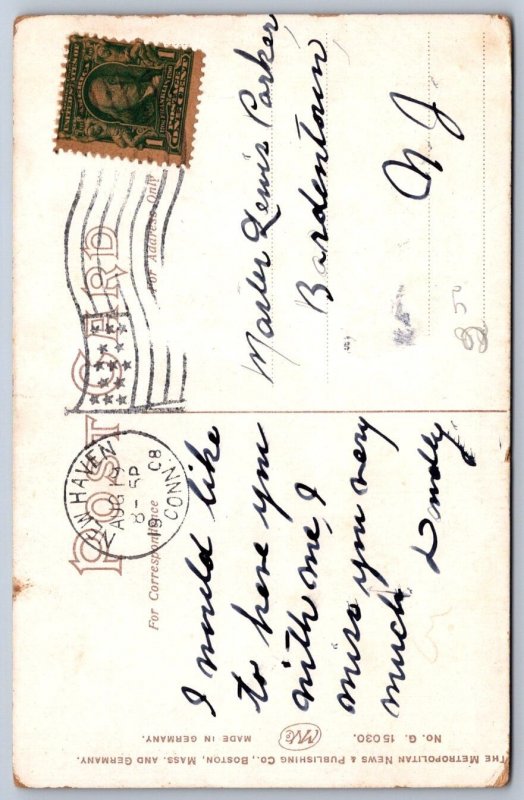 POST CARD
For Correspondence
For Address Only
AUG 19
8-5P
1908
CONN.
ONE CENT
1 1
I would like
to have you
with me, I
miss you very
much
Master Lewis Parker,
Bordentown
N. J.
THE METROPOLITAN NEWS & PUBLISHING CO., BOSTON, MASS. AND GERMANY.
MADE IN GERMANY.
No. G. 15030.